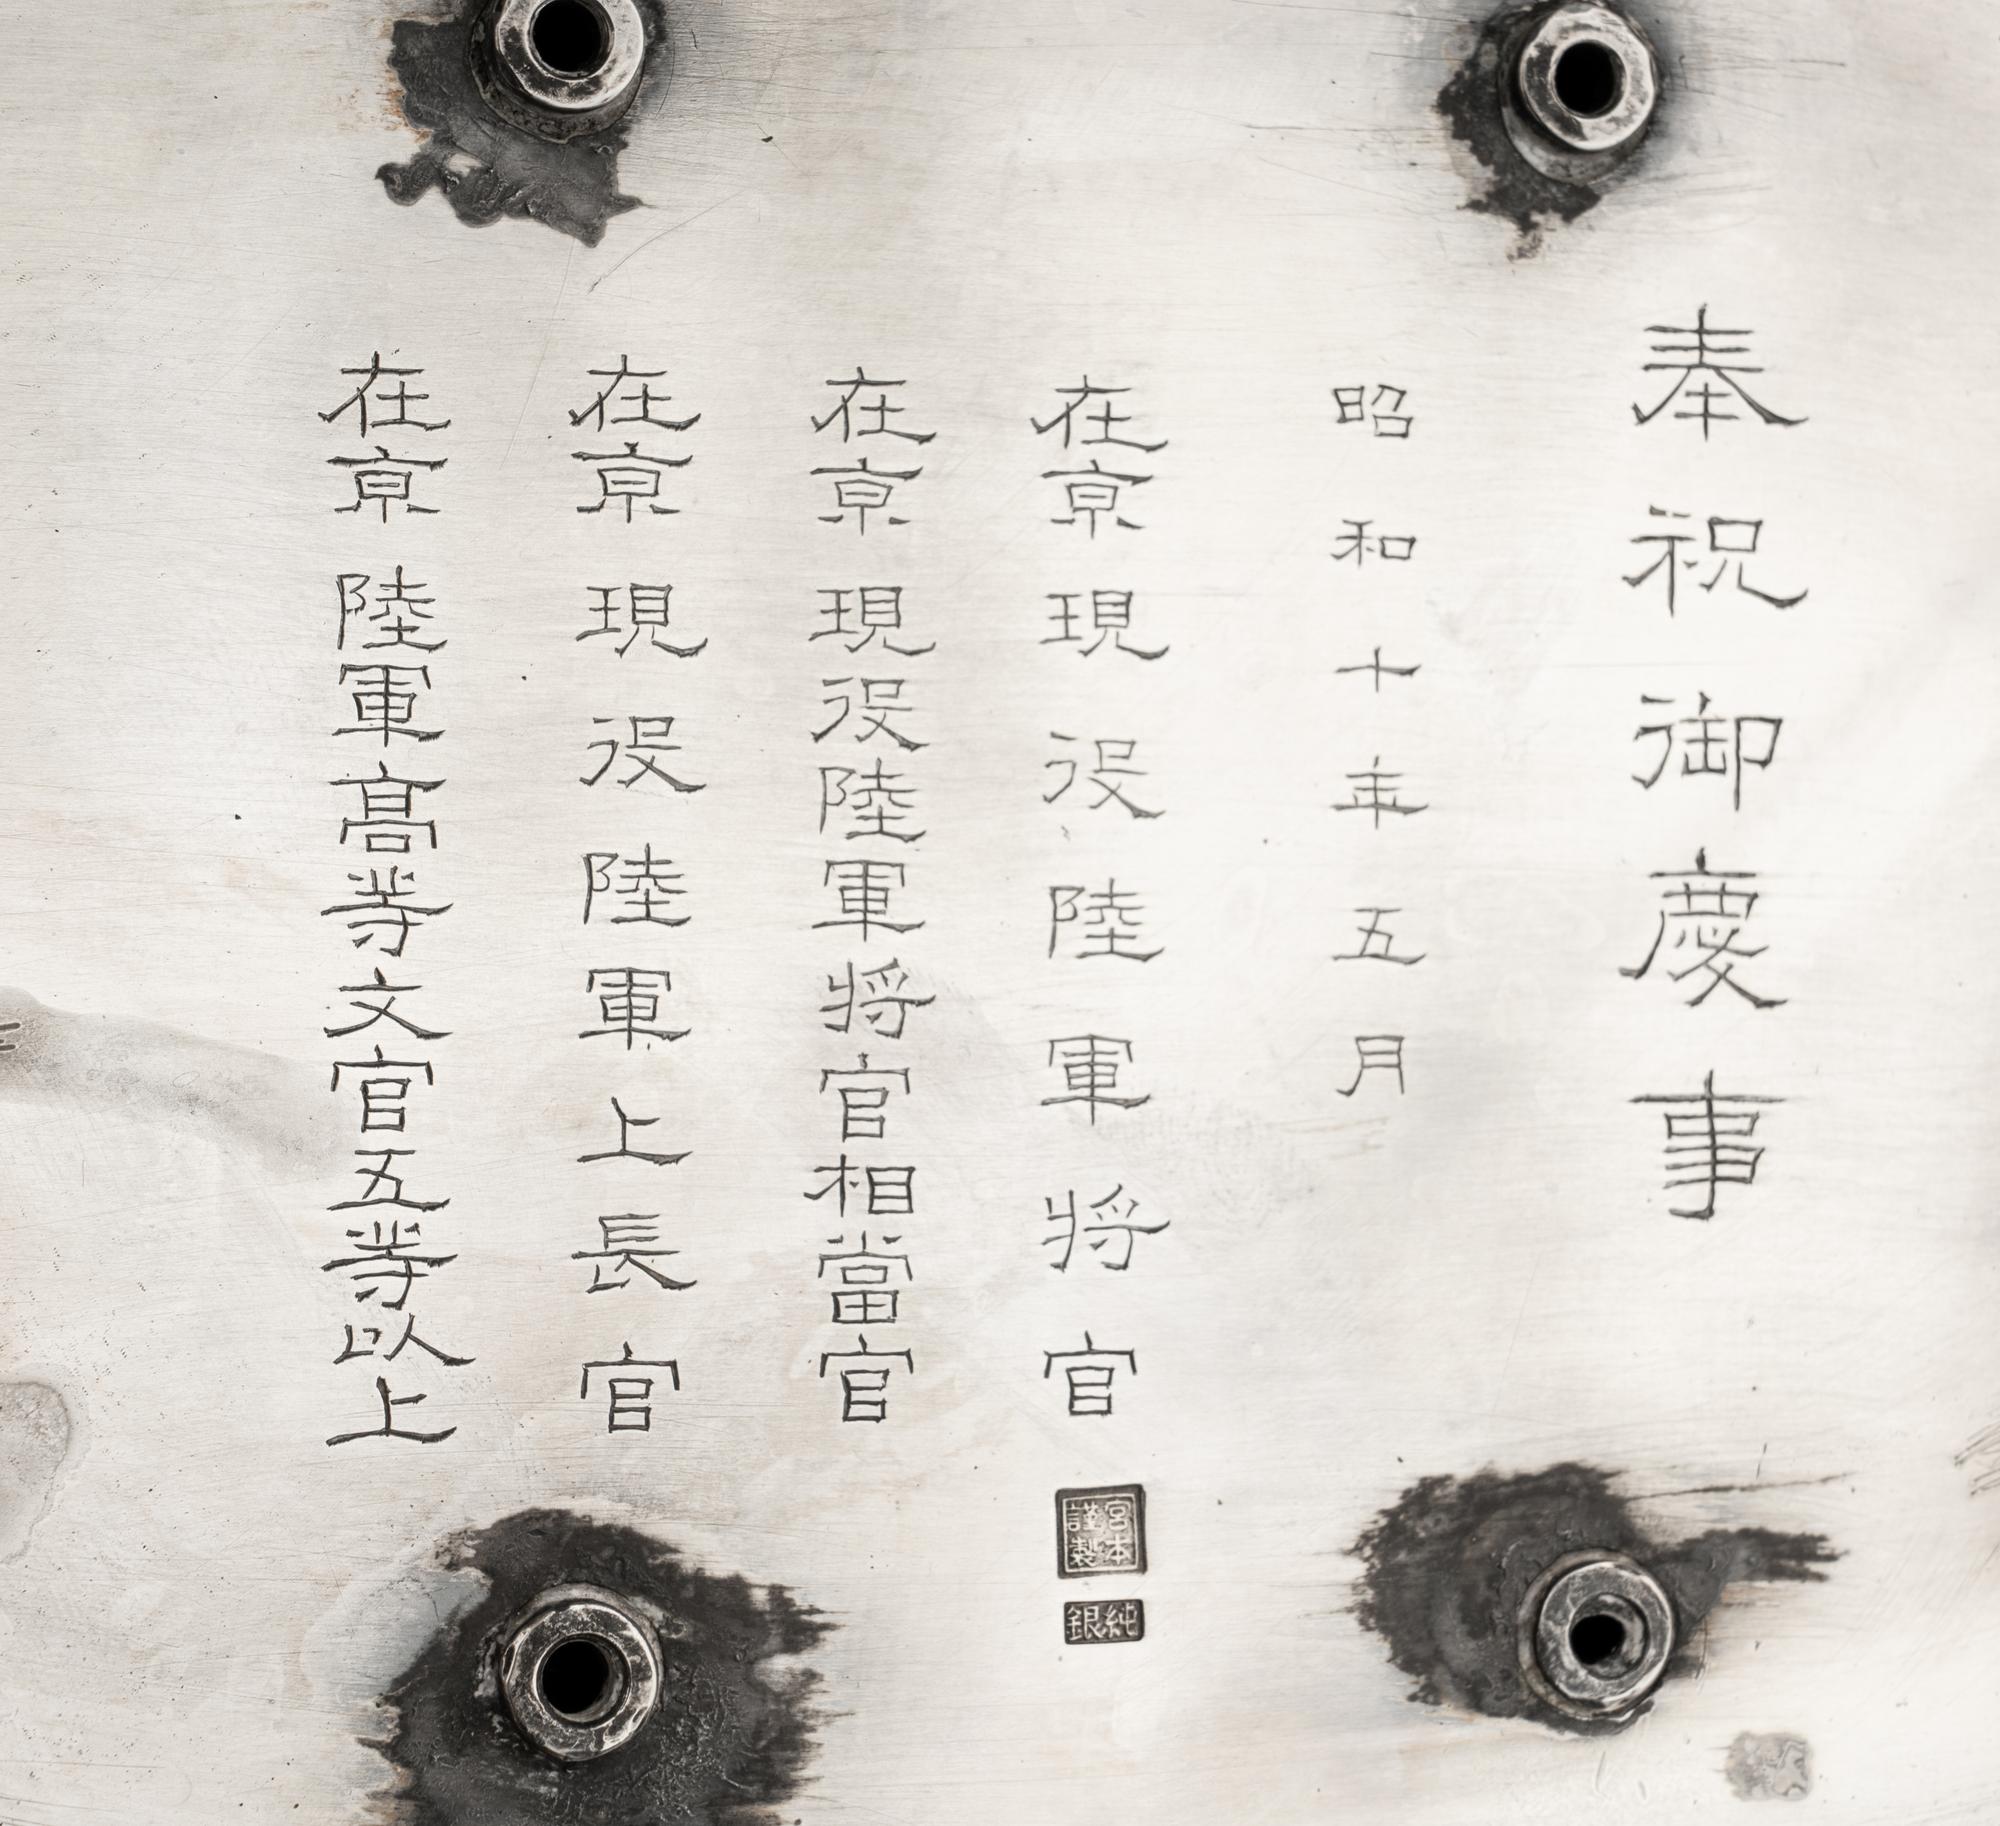 奉祝御慶事
昭和十年五月
在京現役陸軍將官
在京現役陸軍將官相當官
在京現役陸軍上長官
在京陸軍高等文官五等以上
宮本
謹製
純銀